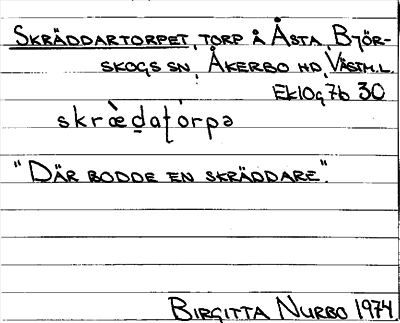 SKRÄDDARTORPET, TORP Å ÅSTA, BJÖR-
SKOGS SN, ÅKERBO HD, VÄSTM.L.
Ekl0g7b 30
skræ̀da ʈórpə
"DÄR BODDE EN SKRÄDDARE".
BIRGITTA NURBO 1974